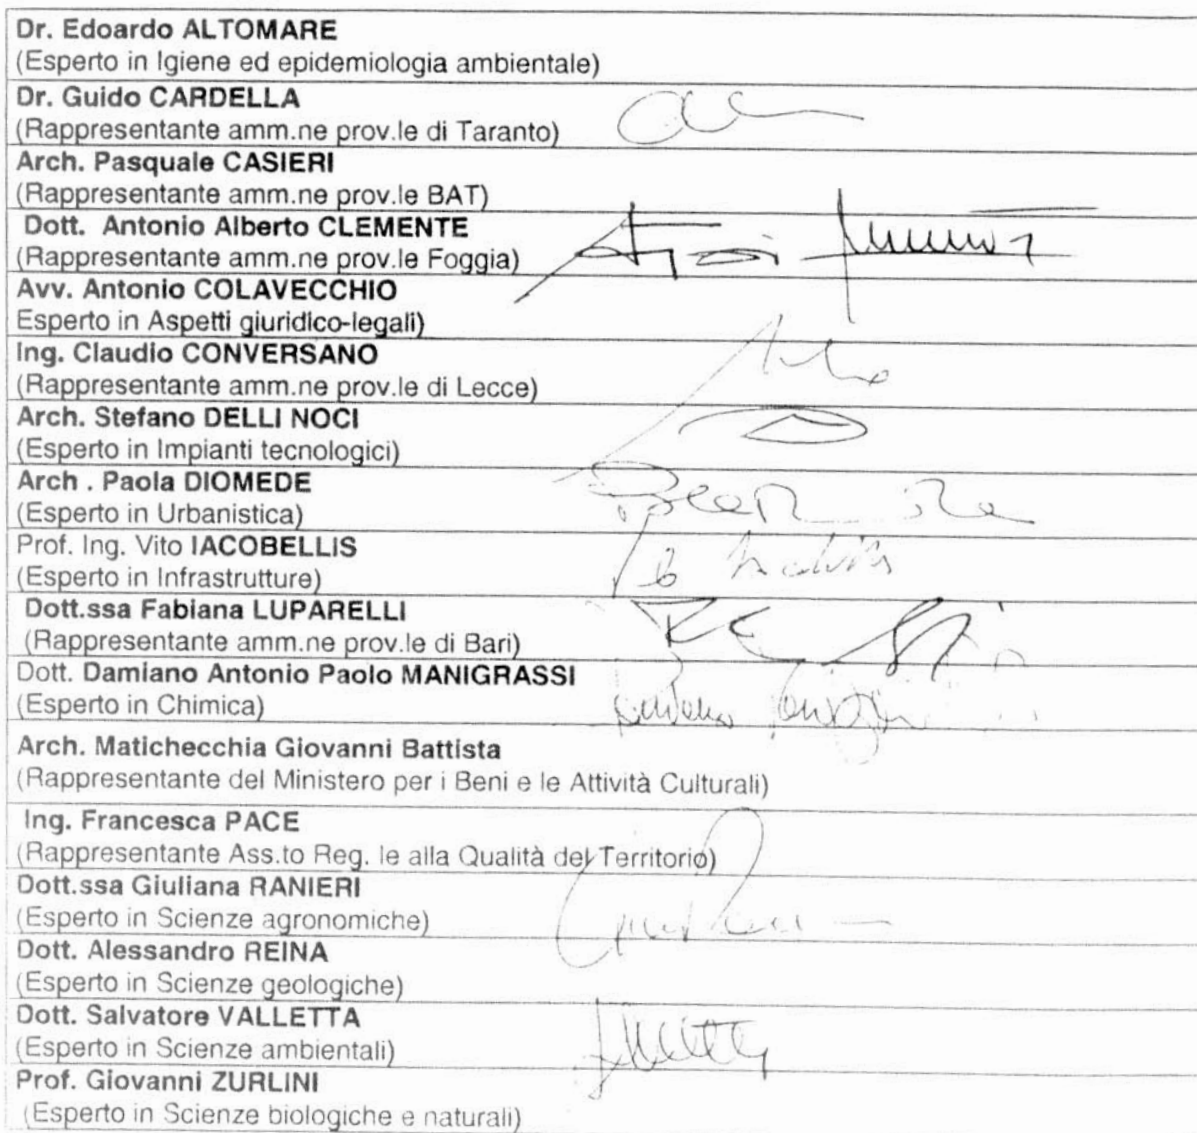 Dr. Edoardo ALTOMARE
(Esperto in Igiene ed epidemiologia ambientale)
Dr. Guido CARDELLA
(Rappresentante amm.ne prov.le di Taranto)
Arch. Pasquale CASIERI
(Rappresentante amm.ne prov.le BAT)
Dott. Antonio Alberto CLEMENTE
(Rappresentante amm.ne prov.le Foggia)
Avv. Antonio COLAVECCHIO
Esperto in Aspetti giuridico-legali)
Ing. Claudio CONVERSANO
(Rappresentante amm.ne prov.le di Lecce)
Arch. Stefano DELLI NOCI
(Esperto in Impianti tecnologici)
Arch . Paola DIOMEDE
(Esperto in Urbanistica)
Prof. Ing. Vito IACOBELLIS
(Esperto in Infrastrutture)
Dott.ssa Fabiana LUPARELLI
(Rappresentante amm.ne prov.le di Bari)
Dott. Damiano Antonio Paolo MANIGRASSI
(Esperto in Chimica)
Arch. Matichecchia Giovanni Battista
(Rappresentante del Ministero per i Beni e le Attività Culturali)
Ing. Francesca PACE
(Rappresentante Ass.to Reg. le alla Qualità del Territorio)
Dott.ssa Giuliana RANIERI
(Esperto in Scienze agronomiche)
Dott. Alessandro REINA
(Esperto in Scienze geologiche)
Dott. Salvatore VALLETTA
(Esperto in Scienze ambientali)
Prof. Giovanni ZURLINI
(Esperto in Scienze biologiche e naturali)